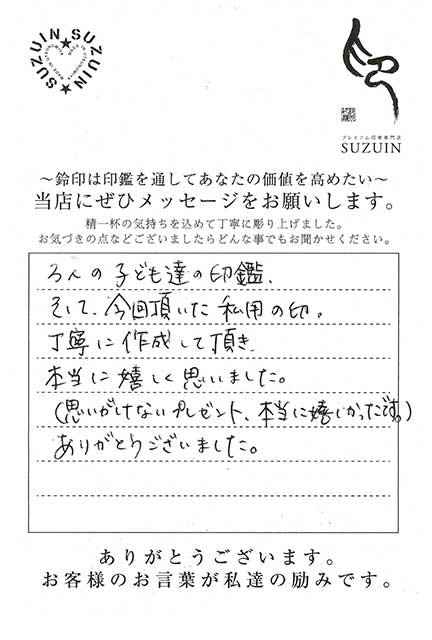 SUZUIN★SUZUIN★
プレミアム印章専門店
SUZUIN
～鈴印は印鑑を通してあなたの価値を高めたい～
当店にぜひメッセージをお願いします。
精一杯の気持ちを込めて丁寧に彫り上げました。
お気づきの点などございましたらどんな事でもお聞かせください。
3人の子ども達の印鑑、
そして、今回頂いた私用の印。
丁寧に作成して頂き
本当に嬉しく思いました。
(思いがけないプレゼント、本当に嬉しかったです。)
ありがとうございました。
ありがとうございます。
お客様のお言葉が私達の励みです。